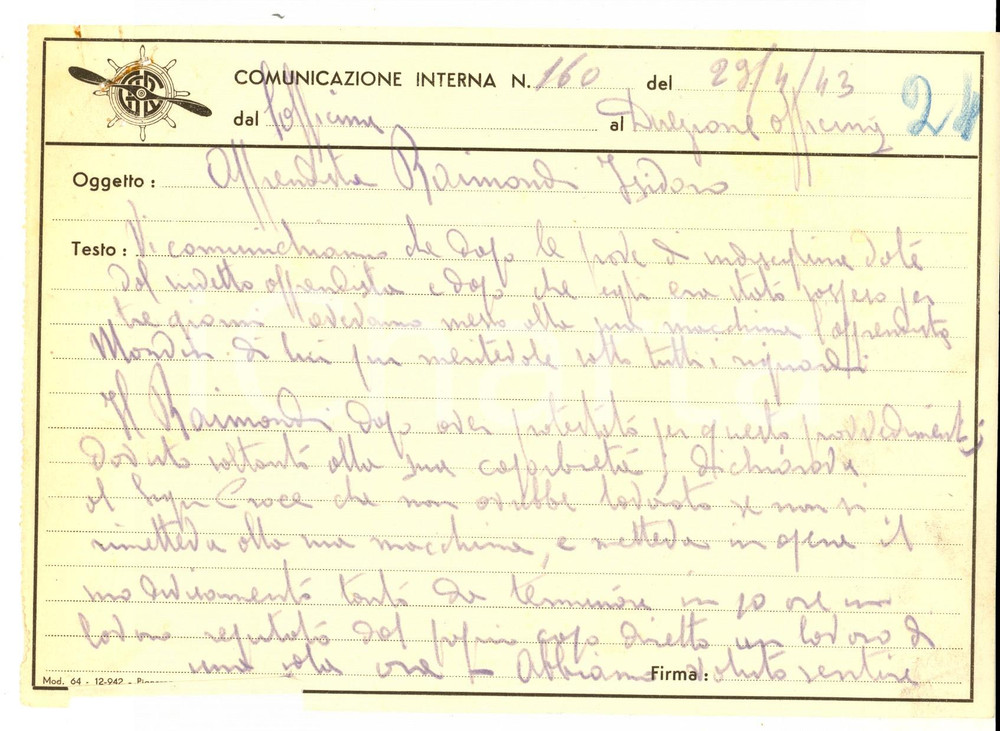 COMUNICAZIONE INTERNA N. 160 del 29/4/43 24
dal l'officina al Direzione officina
Oggetto: Apprendista Raimondi Isidoro
Testo: Vi comunichiamo che dopo le prove di indisciplina date
dal sudetto apprendista e dopo che egli era stato sospeso per
tre giorni avevamo messo alla sua macchina l'apprendista
Mondin di lui più meritevole sotto tutti i riguardi
Il Raimondi dopo aver protestato per questo provvedimento
dovuto soltanto alla sua caparbietà, dichiarava
al Sign Croce che non avrebbe lavorato se non si
rimetteva alla sua macchina, e metteva in opera il
suo divisamento tanto da terminare in 10 ore un
lavoro reputato dal proprio capo diretto un lavoro di
una sola ora - Abbiamo dovuto sentire
Mod. 64 - 12-942 - Firma: